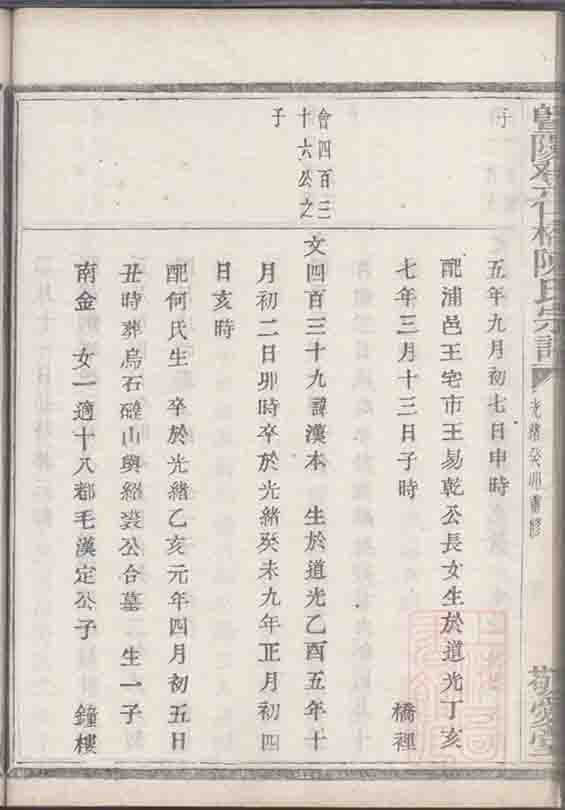 暨陽孝義橋陳氏宗譜
光緒癸卯重修
敬愛堂
子
五年九月初七日申時
配浦邑王宅市王易乾公長女生於道光丁亥
七年三月十三日子時
橋裡
會四百三
十六公之
子
文四百三十九諱漢本 生於道光乙酉五年十
月初二日卯時卒於光緒癸未九年正月初四
日亥時
配何氏生 卒於光緒乙亥元年四月初五日
丑時葬烏石礎山與紹裘公合墓 生一子
南金 女一適十八都毛漢定公子 鐘樓